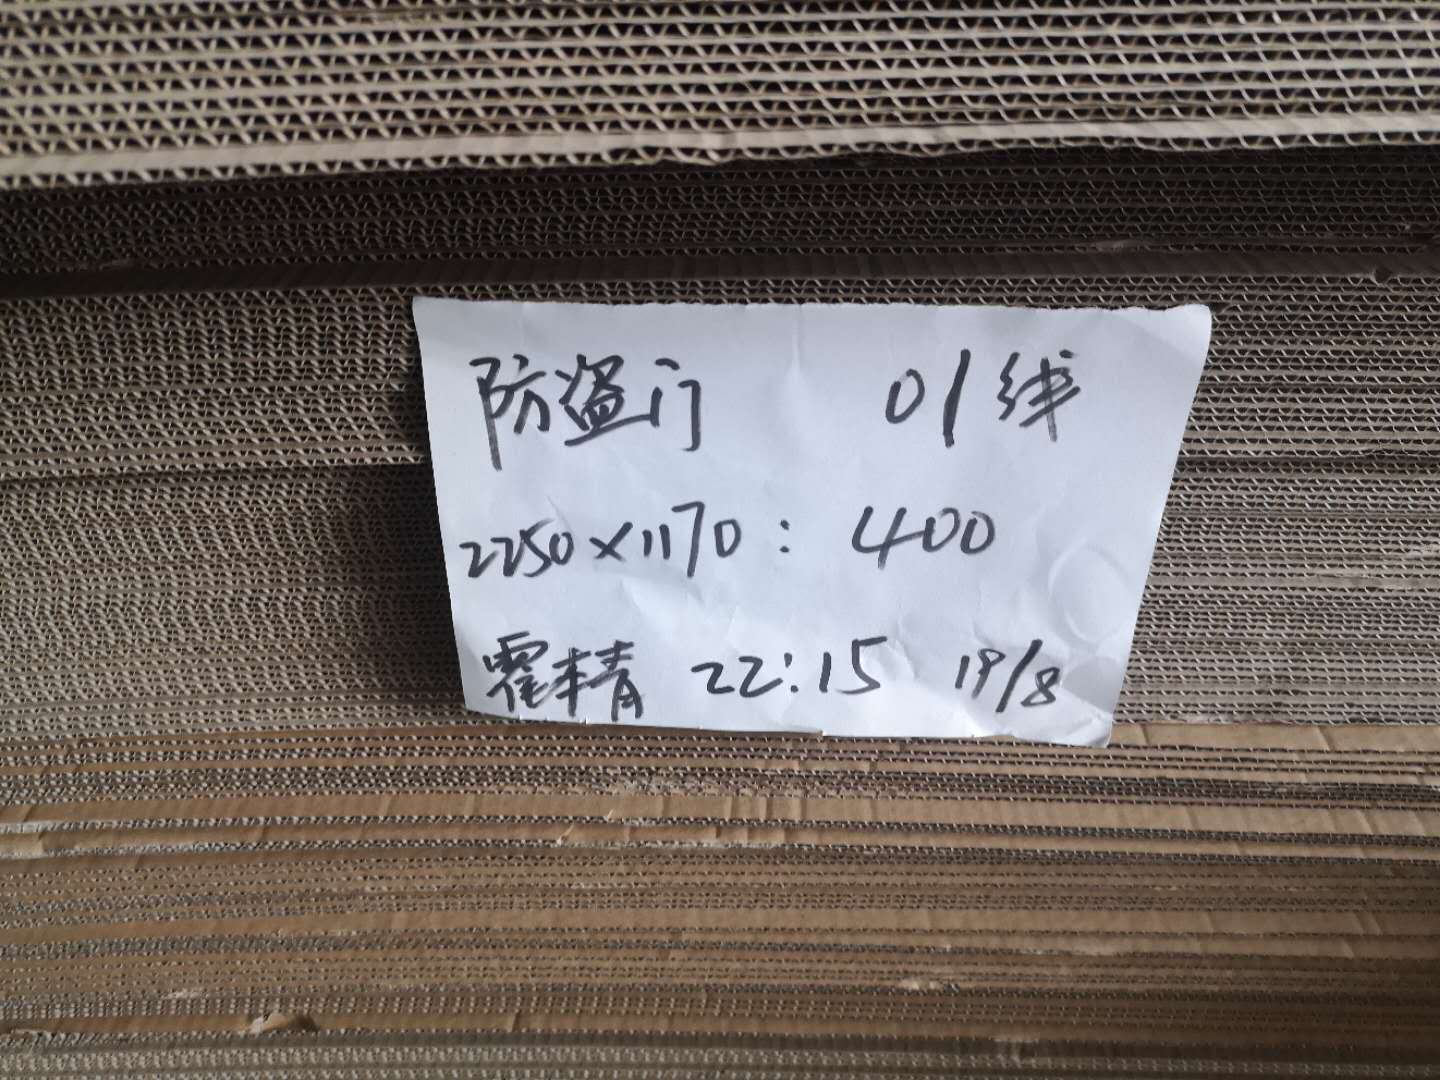 防盗门 01线
2250×1170：400
霍精 22:15 19/8